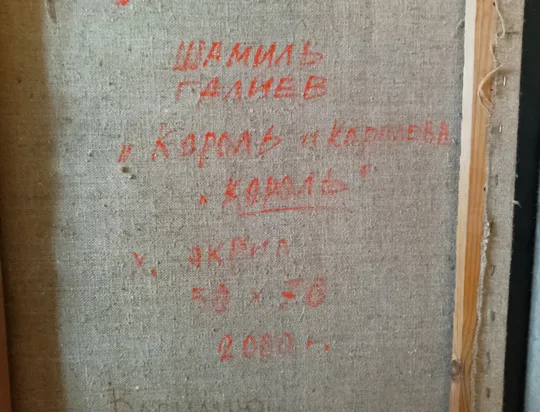 ШАМИЛЬ
ГАЛИЕВ
„ Король и Королева
„ Король "
х. акрил
50 × 70
2000 г.